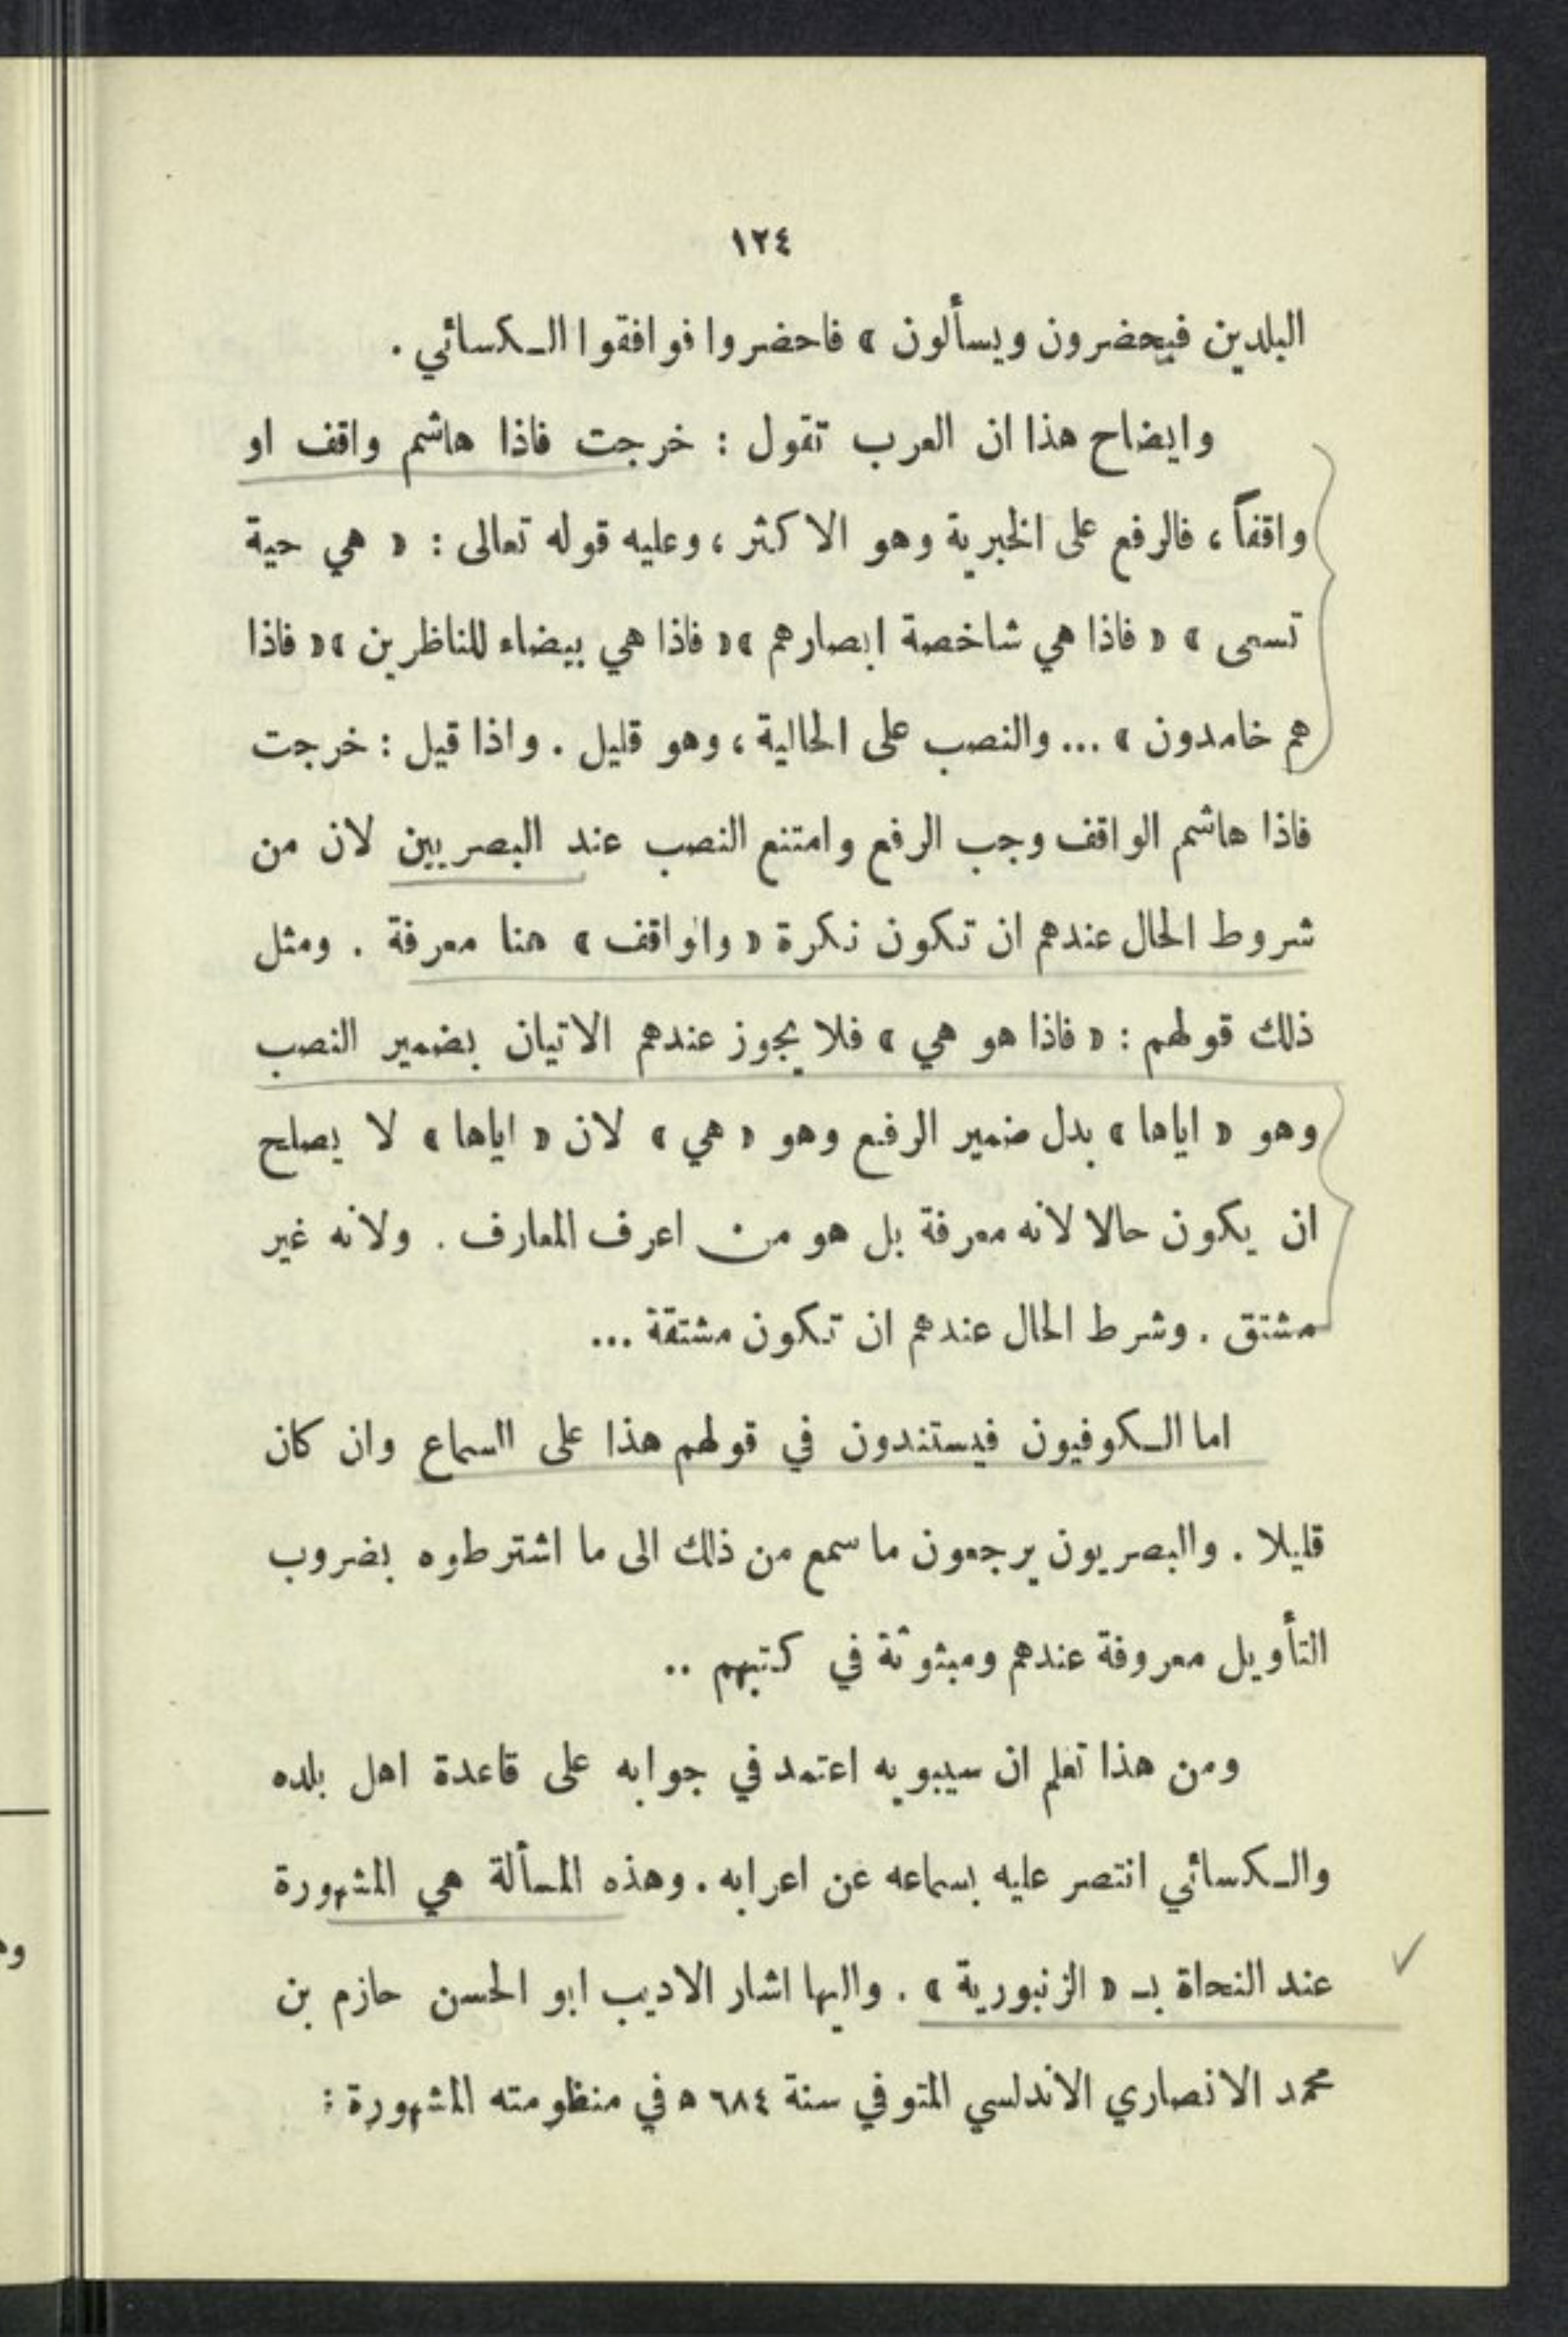 ١٢٤
البلدين فيحضرون ويسألون » فاحضروا فوافقوا الـكسائي .
وايضاح هذا ان العرب تقول : خرجت فاذا هاشم واقف او
واقفاً ، فالرفع على الخبرية وهو الاكثر ، وعليه قوله تعالى : « هي حية
تسعى » « فاذا هي شاخصة ابصارهم » « فاذا هي بيضاء للناظرين » « فاذا
هم خامدون » ... والنصب على الحالية ، وهو قليل . واذا قيل : خرجت
فاذا هاشم الواقف وجب الرفع وامتنع النصب عند البصريين لان من
شروط الحال عندهم ان تكون نكرة « والواقف » هنا معرفة . ومثل
ذلك قولهم : « فاذا هو هي » فلا يجوز عندهم الاتيان بضمير النصب
وهو « اياها » بدل ضمير الرفع وهو « هي » لان « اياها » لا يصلح
ان يكون حالا لانه معرفة بل هو من اعرف المعارف . ولانه غير
مشتق . وشرط الحال عندهم ان تكون مشتقة ...
اما الـكوفيون فيستندون في قولهم هذا على السماع وان كان
قليلا . والبصريون يرجعون ما سمع من ذلك الى ما اشترطوه بضروب
التأويل معروفة عندهم ومبثوثة في كتبهم ..
ومن هذا تعلم ان سيبويه اعتمد في جوابه على قاعدة اهل بلده
والـكسائي انتصر عليه بسماعه عن اعرابه . وهذه المسألة هي المشهورة
عند النحاة بـ « الزنبورية » . واليها اشار الاديب ابو الحسن حازم بن
محمد الانصاري الاندلسي المتوفي سنة ٦٨٤ ه في منظومته المشهورة :